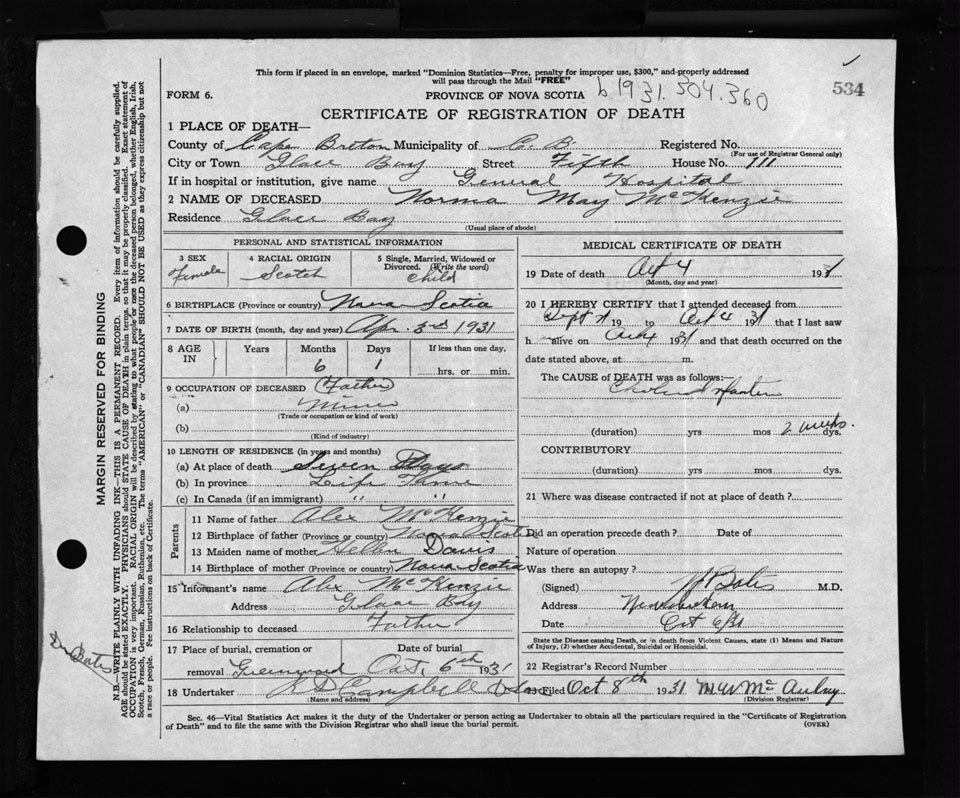 This form if placed in an envelope, marked "Dominion Statistics—Free, penalty for improper use, $300," and properly addressed
will pass through the Mail "FREE"
534
FORM 6.
PROVINCE OF NOVA SCOTIA
b.1931.304.360
CERTIFICATE OF REGISTRATION OF DEATH
1 PLACE OF DEATH—
County of Cape Breton Municipality of C. B. Registered No.
(For use of Registrar General only)
City or Town Glace Bay Street Fifth House No. 111
If in hospital or institution, give name General Hospital
2 NAME OF DECEASED Norma May McKenzie
Residence Glace Bay
(Usual place of abode)
PERSONAL AND STATISTICAL INFORMATION
3 SEX
Female
4 RACIAL ORIGIN
Scotch
5 Single, Married, Widowed or
Divorced. (Write the word)
Child
6 BIRTHPLACE (Province or country) Nova Scotia
7 DATE OF BIRTH (month, day and year) Apr. 3rd 1931
8 AGE IN
Years
Months 6
Days 1
If less than one day.
hrs. or min.
9 OCCUPATION OF DECEASED (Father)
(a) Miner
(Trade or occupation or kind of work)
(b)
(Kind of industry)
10 LENGTH OF RESIDENCE (in years and months)
(a) At place of death Seven Days
(b) In province Life Time
(c) In Canada (if an immigrant) " "
Parents
11 Name of father Alex McKenzie
12 Birthplace of father (Province or country) Nova Scotia
13 Maiden name of mother Davis
14 Birthplace of mother (Province or country) Nova Scotia
15 Informant's name Alex McKenzie
Address Glace Bay
16 Relationship to deceased Father
17 Place of burial, cremation or
removal Greenwood
Date of burial
Oct. 6th 1931
18 Undertaker Campbell
(Name and address)
MEDICAL CERTIFICATE OF DEATH
19 Date of death Oct 4 1931
(Month, day and year)
20 I HEREBY CERTIFY that I attended deceased from
Sept 19 to Oct 4 1931 that I last saw
h alive on Oct 4 1931 and that death occurred on the
date stated above, at m.
The CAUSE of DEATH was as follows:—
Cholera Infantum
(duration) yrs mos 2 weeks. dys.
CONTRIBUTORY
(duration) yrs mos dys.
21 Where was disease contracted if not at place of death?
Did an operation precede death? Date of
Nature of operation
Was there an autopsy?
(Signed) M.D.
Address
Date Oct 6/31
State the Disease causing Death, or in death from Violent Causes, state (1) Means and Nature
of Injury, (2) whether Accidental, Suicidal or Homicidal.
22 Registrar's Record Number
23 Filed Oct 8th 1931
(Division Registrar)
Sec. 46—Vital Statistics Act makes it the duty of the Undertaker or person acting as Undertaker to obtain all the particulars required in the "Certificate of Registration
of Death" and to file the same with the Division Registrar who shall issue the burial permit.
(OVER)
MARGIN RESERVED FOR BINDING
N.B. WRITE PLAINLY WITH UNFADING INK—THIS IS A PERMANENT RECORD. Every item of information should be carefully supplied.
AGE should be stated EXACTLY. PHYSICIANS should STATE CAUSE OF DEATH in plain terms, so that it may be properly classified. Exact statement of
OCCUPATION is very important. RACIAL ORIGIN will be described by stating to what people or race the deceased person belonged, whether English, Irish,
Scotch, French, German, Russian, Ruthenian, etc. The terms "AMERICAN" or "CANADIAN" SHOULD NOT BE USED as they express citizenship but not
a race or people. See instructions on back of Certificate.